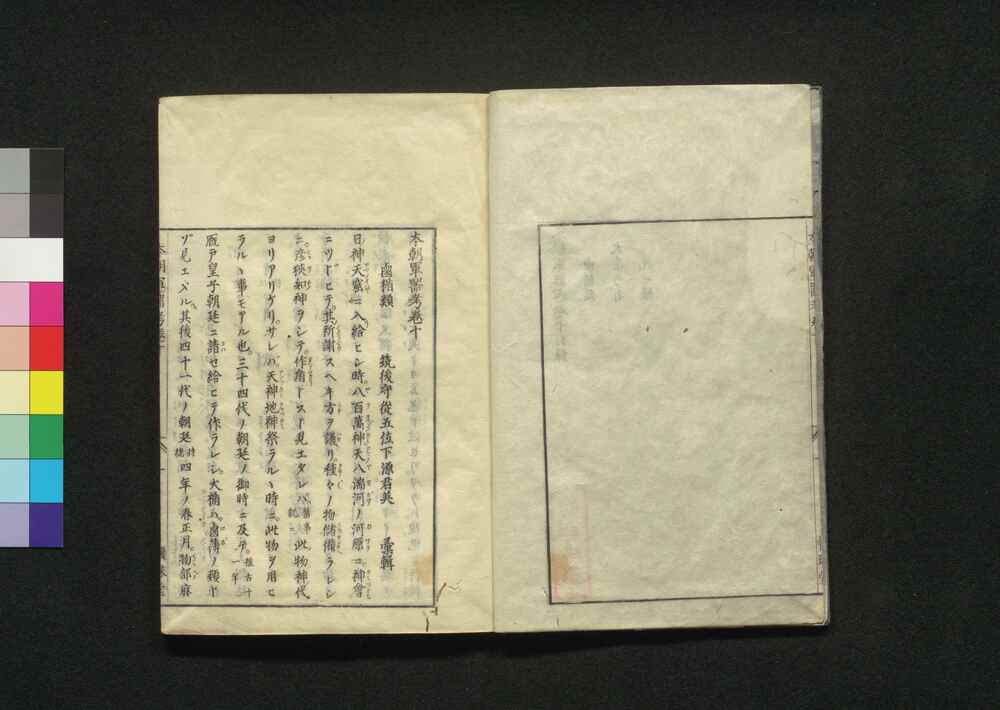 本朝軍器考巻十
鹵楯類 筑後守従五位下源君美 彙輯
日神天窟ニ入給ヒシ時八百萬神天八湍河ノ河原ニ神會
ニツドヒテ其所謝スヘキ方ヲ議リ種々ノ物儲備ラレシ
ニ彦狭知神ヲシテ作盾トスト見エタレハ此物神代
ヨリアリケリサレハ天神地神祭ラルヽ時ニ此物ヲ用ヒ
ラルヽ事モアル也三十四代ノ朝廷ノ御時ニ及テ推古十一年
厩戸皇子朝廷ニ請セ給ヒテ作ラレシ大楯鹵簿ノ類
ゾ見エヌル其後四十一代ノ朝廷持統四年ノ春正月物部麻